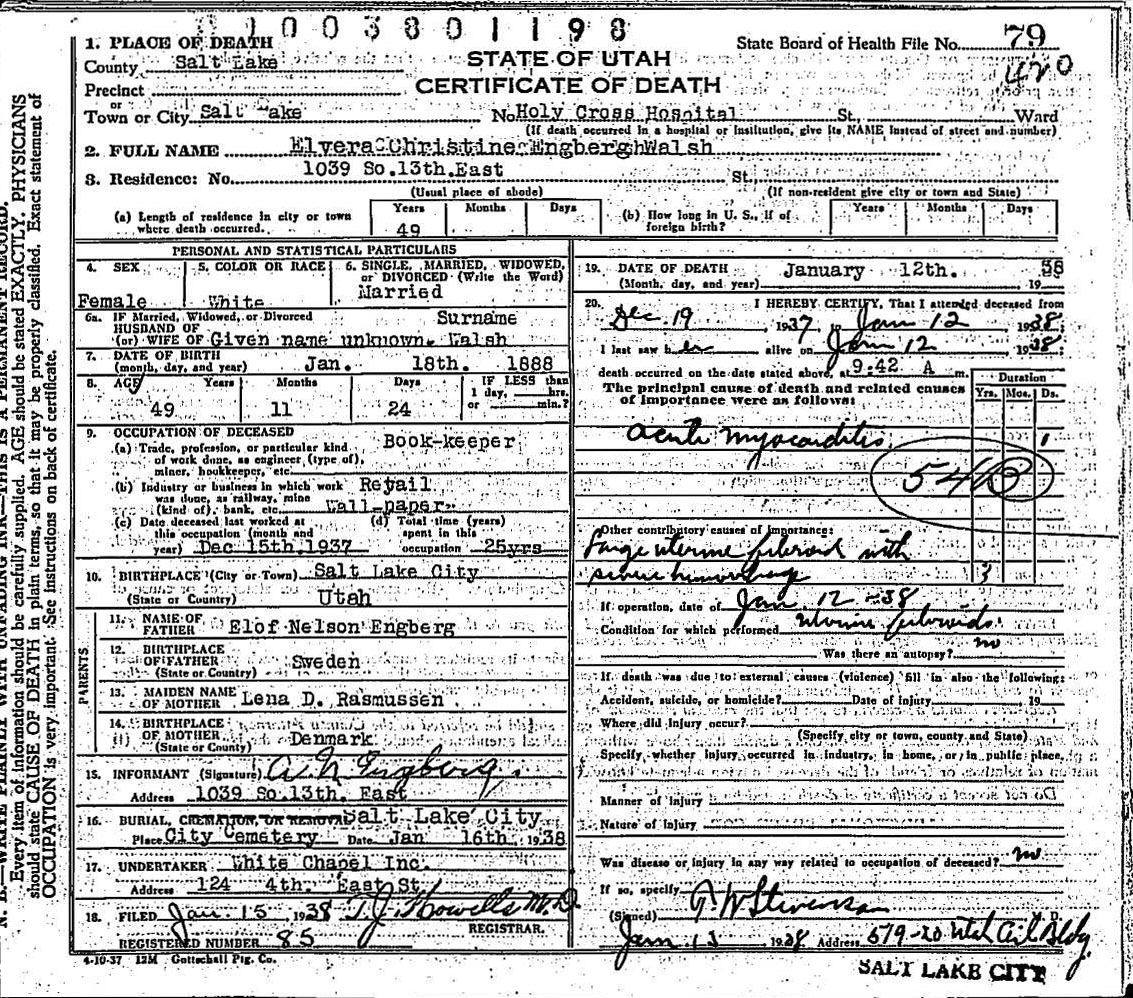 1003801198
1. PLACE OF DEATH
State Board of Health File No. 79
County Salt Lake
STATE OF UTAH
420
Precinct
CERTIFICATE OF DEATH
or
Town or City Salt Lake No Holy Cross Hospital St. Ward
(If death occurred in a hospital or institution, give its NAME instead of street and number)
2. FULL NAME Elvera Christine Engbergh Walsh
3. Residence: No. 1039 So. 13th. East St.
(Usual place of abode) (If non-resident give city or town and State)
(a) Length of residence in city or town where death occurred. Years 49 Months Days
(b) How long in U. S., if of foreign birth? Years Months Days
PERSONAL AND STATISTICAL PARTICULARS
4. SEX Female
5. COLOR OR RACE White
6. SINGLE, MARRIED, WIDOWED, or DIVORCED (Write the Word) Married
6a. IF Married, Widowed, or Divorced Surname
HUSBAND OF
(or) WIFE OF Given name unknown. Walsh
7. DATE OF BIRTH
(month, day, and year) Jan. 18th. 1888
8. AGE Years 49 Months 11 Days 24
IF LESS than 1 day, hrs. or min.?
9. OCCUPATION OF DECEASED
(a) Trade, profession, or particular kind of work done, as engineer (type of), miner, bookkeeper, etc. Book-keeper
(b) Industry or business in which work was done, as railway, mine (kind of), bank, etc. Retail Wall-paper
(c) Date deceased last worked at this occupation (month and year) Dec 15th. 1937
(d) Total time (years) spent in this occupation 25yrs
10. BIRTHPLACE (City or Town) Salt Lake City
(State or Country) Utah
PARENTS
11. NAME OF FATHER Elof Nelson Engberg
12. BIRTHPLACE OF FATHER (State or Country) Sweden
13. MAIDEN NAME OF MOTHER Lena D. Rasmussen
14. BIRTHPLACE OF MOTHER (State or County) Denmark
15. INFORMANT (Signature) A N Engberg.
Address 1039 So. 13th. East
16. BURIAL, CREMATION, OR REMOVAL Salt Lake City
Place City Cemetery Date Jan 16th. 1938
17. UNDERTAKER White Chapel Inc.
Address 124 4th. East St.
18. FILED Jan. 15, 1938 T. J. Howells M.D.
REGISTRAR.
REGISTERED NUMBER 85
4-10-37 12M Gottschall Ptg. Co.
19. DATE OF DEATH January 12th. 19 38
(Month, day, and year)
20. I HEREBY CERTIFY, That I attended deceased from
Dec. 19 1937 Jan 12 1938
I last saw her alive on Jan 12 1938
death occurred on the date stated above, at 9:42 A m.
The principal cause of death and related causes of importance were as follows:
Duration
Yrs. Mos. Ds.
acute myocarditis 1
54B
Other contributory causes of importance:
Large uterine fibroid with
severe hemorrhage 3
If operation, date of Jan. 12-38
Condition for which performed uterine fibroids.
Was there an autopsy? no
If death was due to external causes (violence) fill in also the following:
Accident, suicide, or homicide? Date of injury 19
Where did injury occur?
(Specify city or town, county and State)
Specify whether injury occurred in industry, in home, or in public place.
Manner of injury
Nature of injury
Was disease or injury in any way related to occupation of deceased? no
If so, specify
(Signed) G W Stevenson D.
Jan 13 1938 Address
SALT LAKE CITY
N. B.—WRITE PLAINLY WITH UNFADING INK—THIS IS A PERMANENT RECORD.
Every item of information should be carefully supplied. AGE should be stated EXACTLY. PHYSICIANS
should state CAUSE OF DEATH in plain terms, so that it may be properly classified. Exact statement of
OCCUPATION is very important. See instructions on back of certificate.